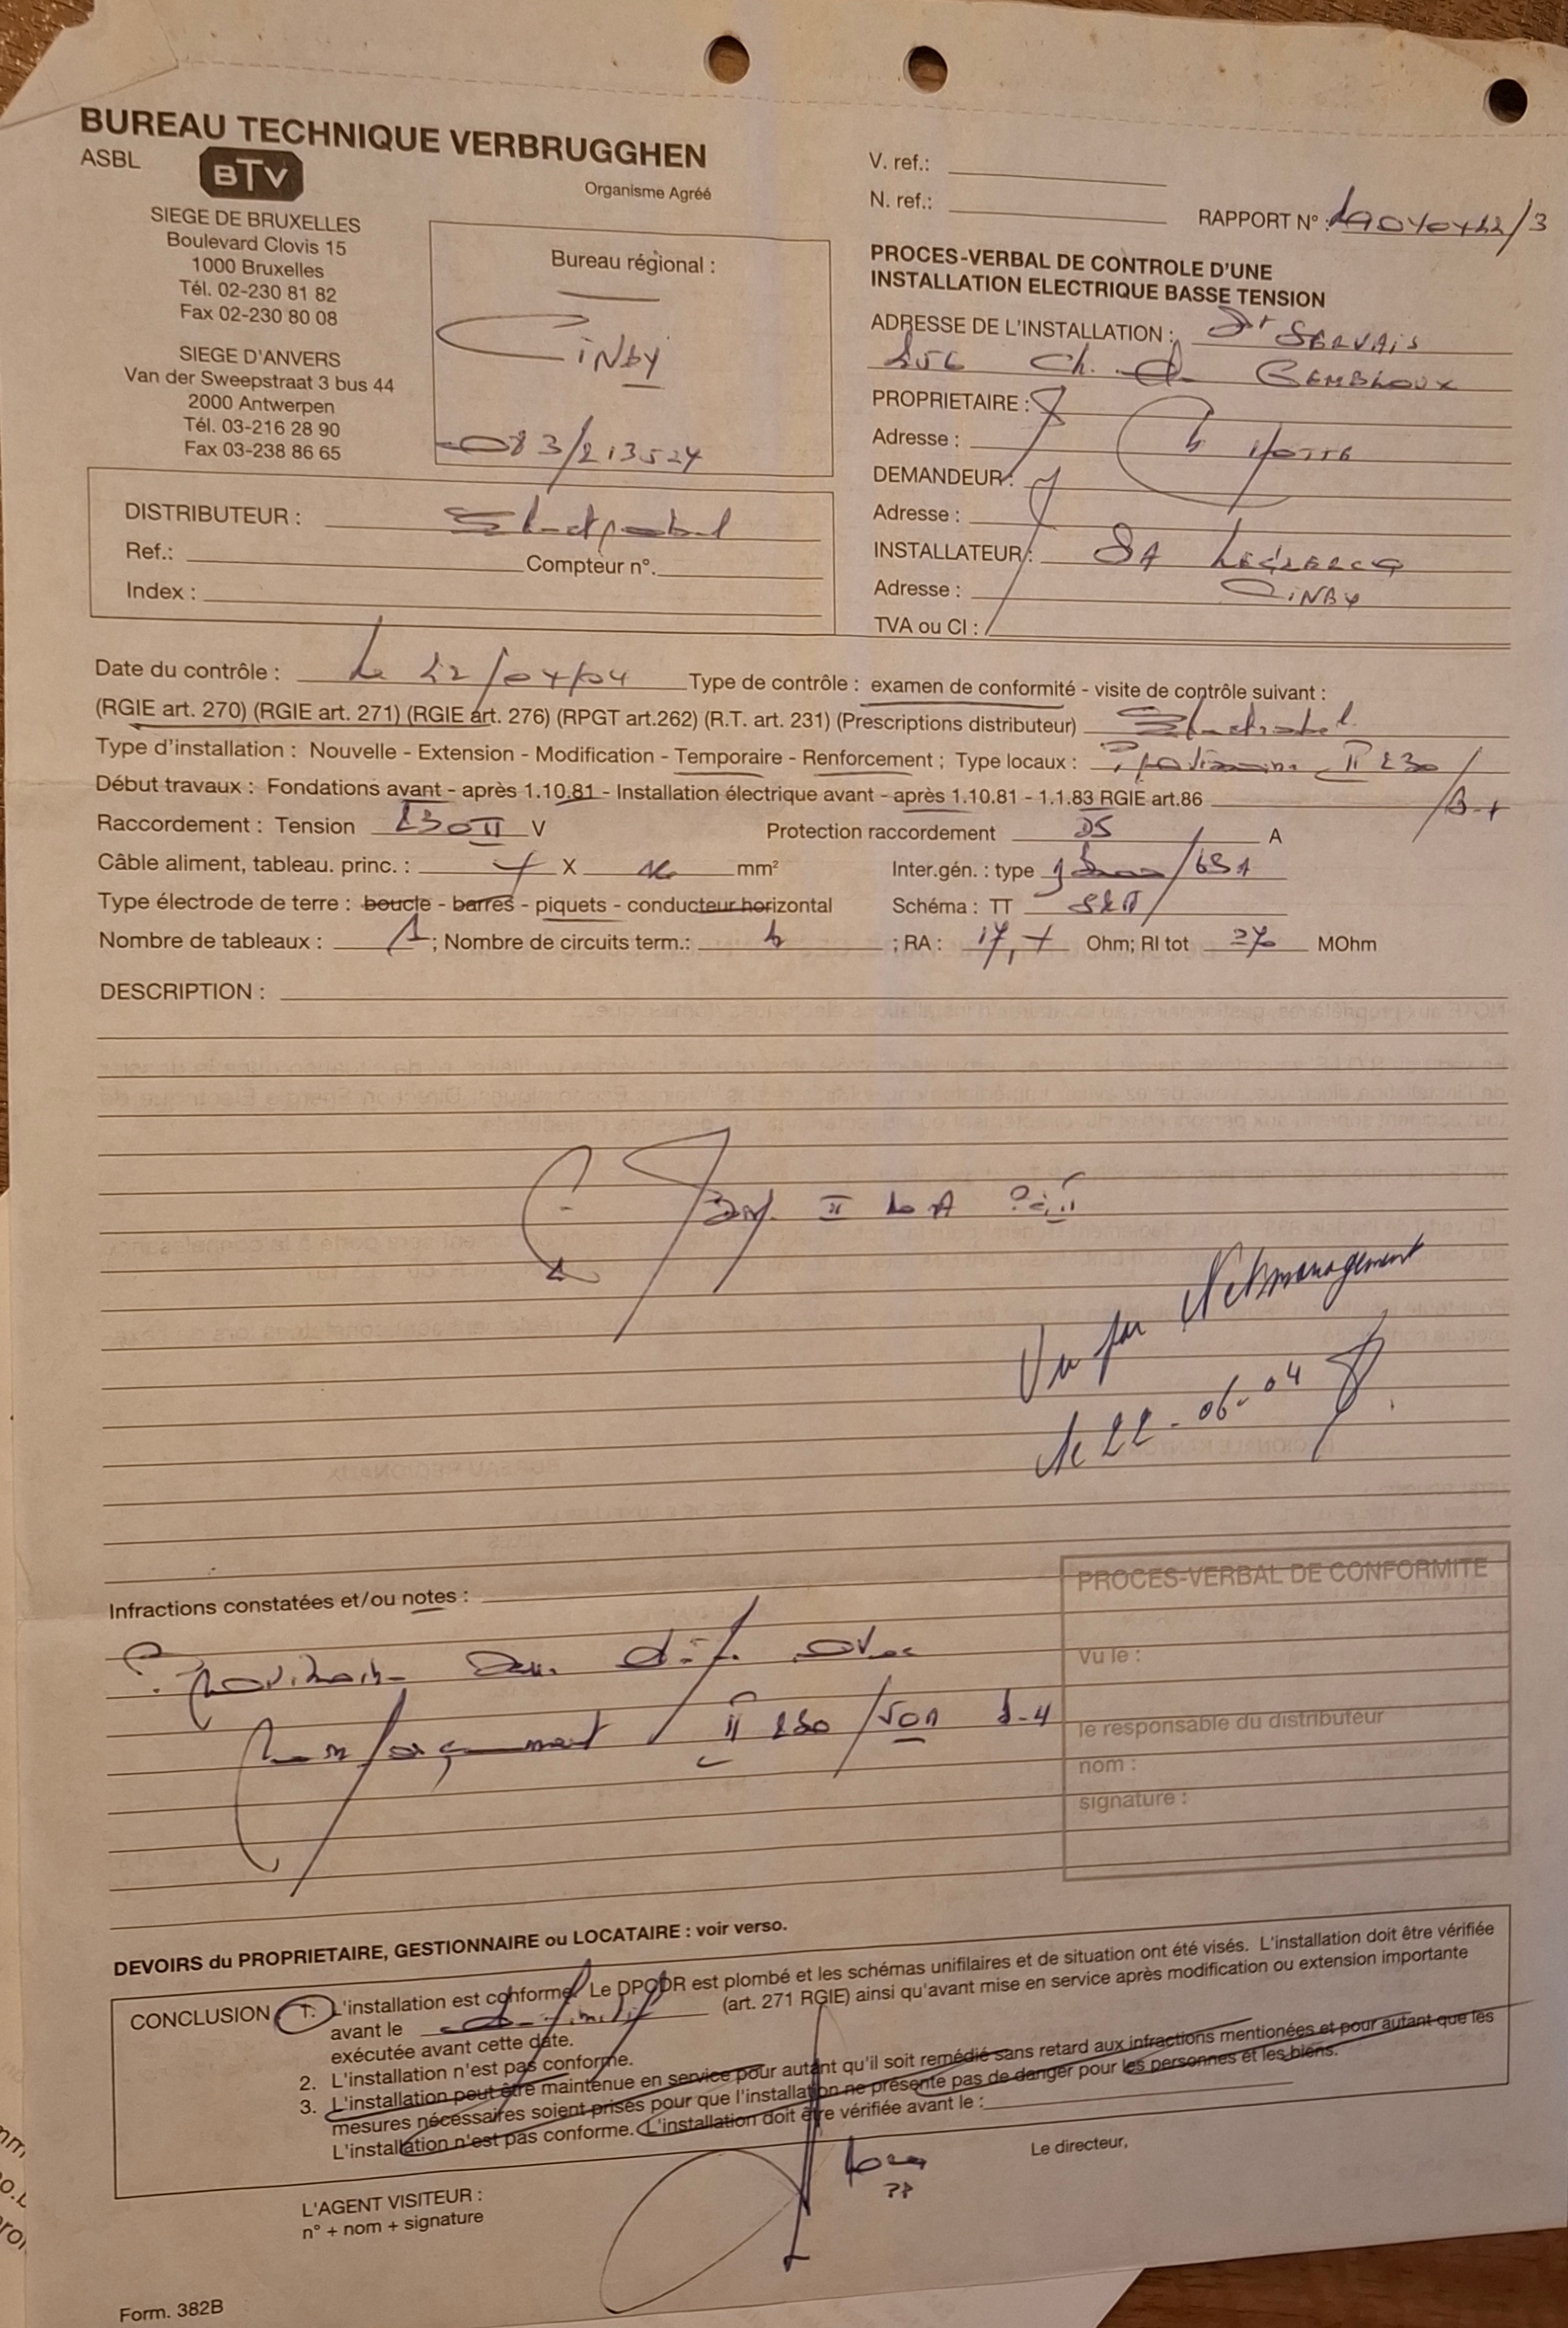 BUREAU TECHNIQUE VERBRUGGHEN
ASBL
BTV
Organisme Agréé
SIEGE DE BRUXELLES
Boulevard Clovis 15
1000 Bruxelles
Tél. 02-230 81 82
Fax 02-230 80 08
SIEGE D'ANVERS
Van der Sweepstraat 3 bus 44
2000 Antwerpen
Tél. 03-216 28 90
Fax 03-238 86 65
Bureau régional :
CiNEY
083/213524
V. ref.:
N. ref.:
RAPPORT N° :
PROCES-VERBAL DE CONTROLE D'UNE
INSTALLATION ELECTRIQUE BASSE TENSION
ADRESSE DE L'INSTALLATION : St SERVAIS
256 Ch. de GEMBLOUX
PROPRIETAIRE :
Adresse :
DEMANDEUR :
Adresse :
INSTALLATEUR : SA LECLERCQ
Adresse : CiNEY
TVA ou CI :
DISTRIBUTEUR : Electrabel
Ref.: Compteur n°.
Index :
Date du contrôle : Le 22/04/04 Type de contrôle : examen de conformité - visite de contrôle suivant :
(RGIE art. 270) (RGIE art. 271) (RGIE art. 276) (RPGT art.262) (R.T. art. 231) (Prescriptions distributeur) Electrabel
Type d'installation : Nouvelle - Extension - Modification - Temporaire - Renforcement ; Type locaux : II 230
Début travaux : Fondations avant - après 1.10.81 - Installation électrique avant - après 1.10.81 - 1.1.83 RGIE art.86
Raccordement : Tension 230 II V Protection raccordement A
Câble aliment, tableau. princ. : X mm² Inter.gén. : type /63A
Type électrode de terre : boucle - barres - piquets - conducteur horizontal Schéma : TT
Nombre de tableaux : 1 ; Nombre de circuits term.: ; RA : Ohm; RI tot MOhm
DESCRIPTION :
II
Vu par Netmanagement
le 22-06-04
Infractions constatées et/ou notes :
avec
renforcement II 230
PROCES-VERBAL DE CONFORMITE
Vu le :
le responsable du distributeur
nom :
signature :
DEVOIRS du PROPRIETAIRE, GESTIONNAIRE ou LOCATAIRE : voir verso.
CONCLUSION 1. L'installation est conforme. Le DPCDR est plombé et les schémas unifilaires et de situation ont été visés. L'installation doit être vérifiée
avant le (art. 271 RGIE) ainsi qu'avant mise en service après modification ou extension importante
exécutée avant cette date.
2. L'installation n'est pas conforme.
3. L'installation peut être maintenue en service pour autant qu'il soit remédié sans retard aux infractions mentionées et pour autant que les
mesures nécessaires soient prises pour que l'installation ne présente pas de danger pour les personnes et les biens.
L'installation n'est pas conforme. L'installation doit être vérifiée avant le :
L'AGENT VISITEUR :
n° + nom + signature
Le directeur,
Form. 382B